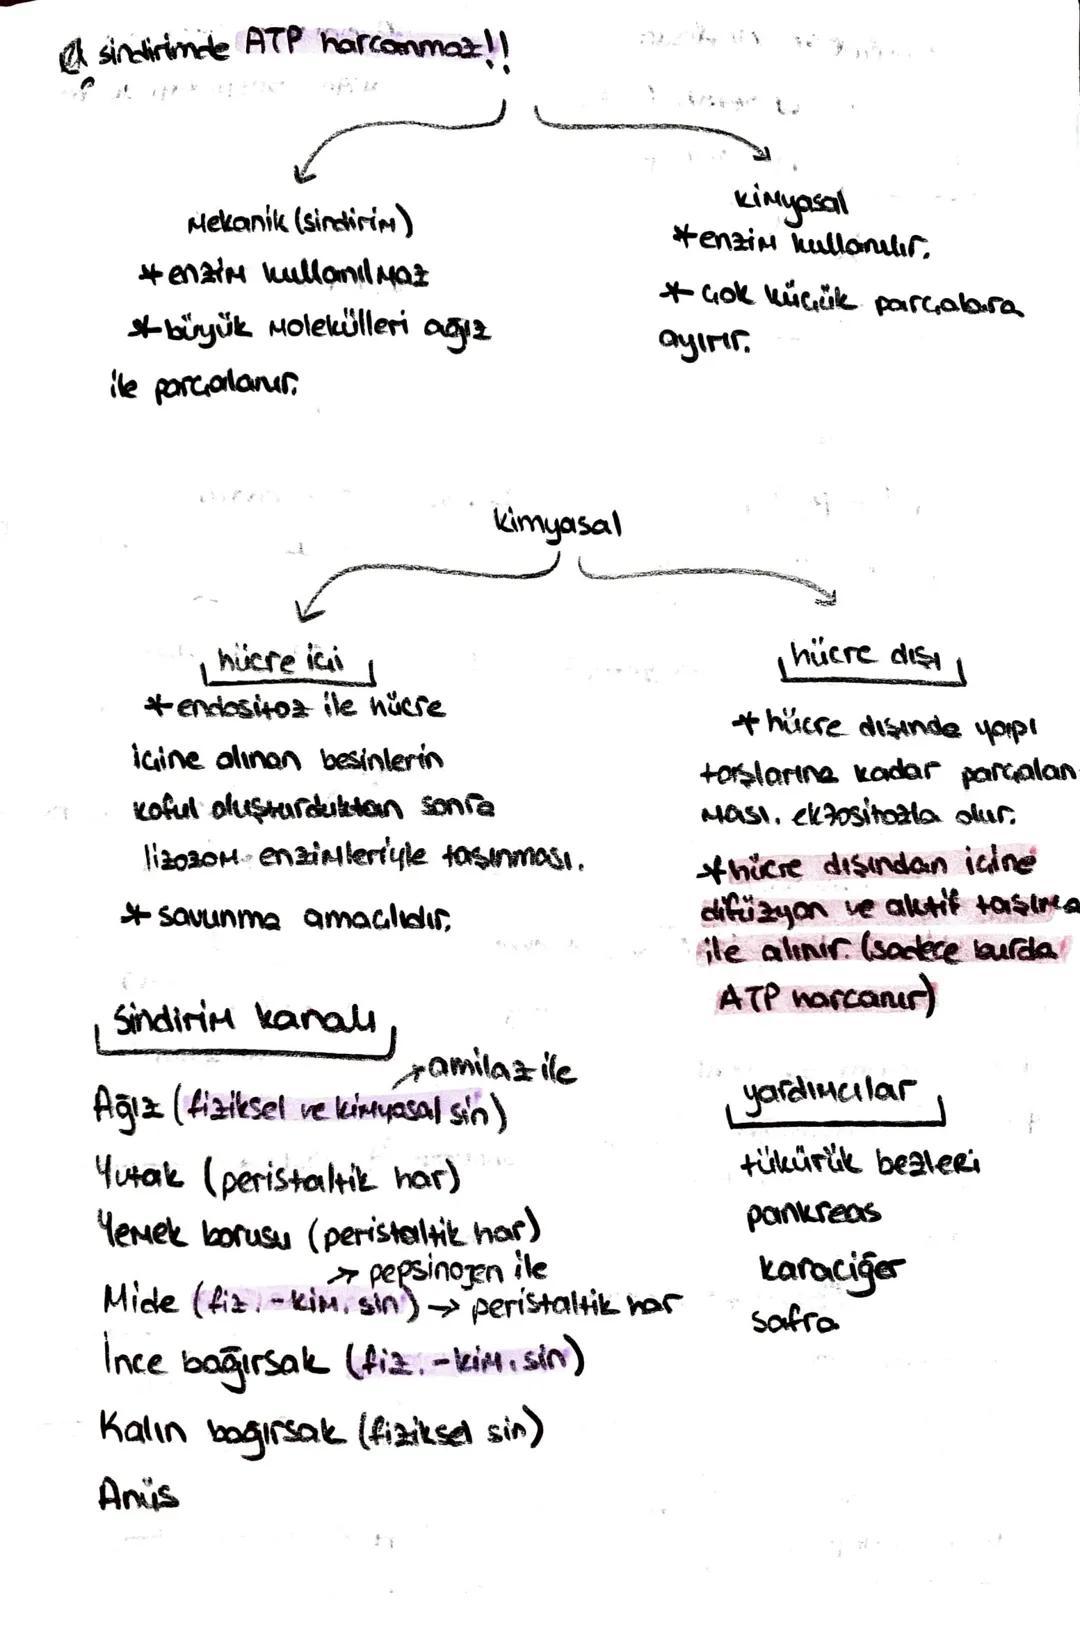 sindirimde ATP harcanmaz!!
Mekanik (sindirim)
*enzim kullanılmaz
*büyük molekülleri ağız
ile parçalanır.
kimyasal
*enzim kullanılır.
*çok küçük parçalara
ayırır.
kimyasal
hücre içi
*endositoz ile hücre
içine alınan besinlerin
koful oluşturduktan sonra
lizozom enzimleriyle taşınması.
*savunma amaçlıdır.
hücre dışı
*hücre dışında yapı
taşlarına kadar parçalan
ması. ekzositozla olur.
*hücre dışından içine
difüzyon ve aktif taşıma
ile alınır. (sadece burda
ATP harcanır)
Sindirim kanalı
→amilaz ile
Ağız (fiziksel ve kimyasal sin)
Yutak (peristaltik har)
Yemek borusu (peristaltik har)
→ pepsinojen ile
Mide (fiz. -kim. sin) → peristaltik har
İnce bağırsak (fiz. -kim. sin)
Kalın bağırsak (fiziksel sin)
Anüs
yardımcılar
tükürük bezleri
pankreas
karaciğer
safra